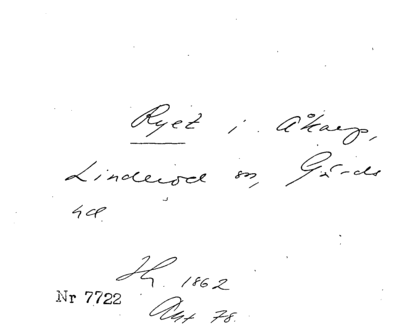 Ryet i Åkarp,
Linderöd sn, Gärds
hd
Hf. 1862
Nr 7722
Avt 78.